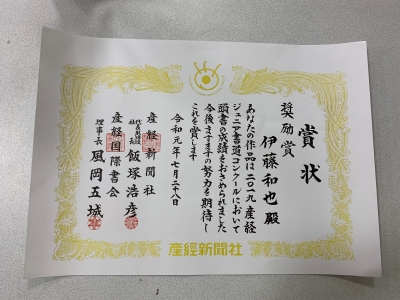 賞状
奨励賞
伊藤和也殿
あなたの作品は二〇一九産経
ジュニア書道コンクールにおいて
頭書の成績をおさめられました
今後ますますの努力を期待し
これを賞します
令和元年七月二十八日
産経新聞社
代表取締役社長 飯塚浩彦
産経国際書会
理事長 風岡五城
産經新聞社